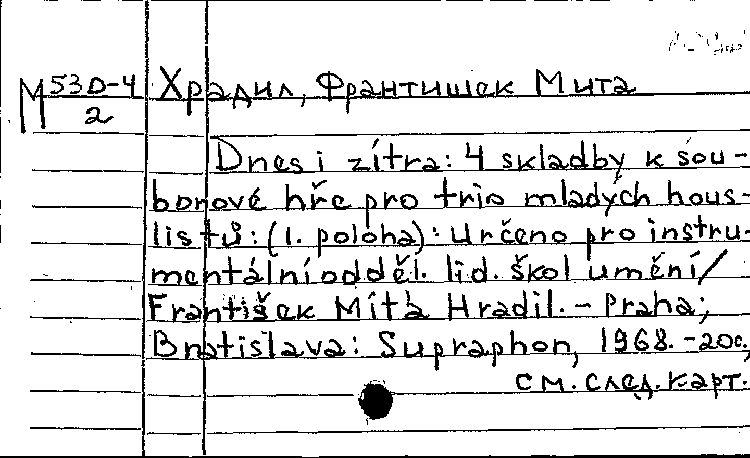 М 53D-4 Храдил, Франтишек Мита
2
Dnes i zítra: 4 skladby k sou-
borové hře pro trio mladých hous-
listů: (1. poloha): Určeno pro instru-
mentální odděl. lid. škol umění/
František Míťa Hradil. - Praha;
Bratislava: Supraphon, 1968. - 20с.,
см. след. карт.